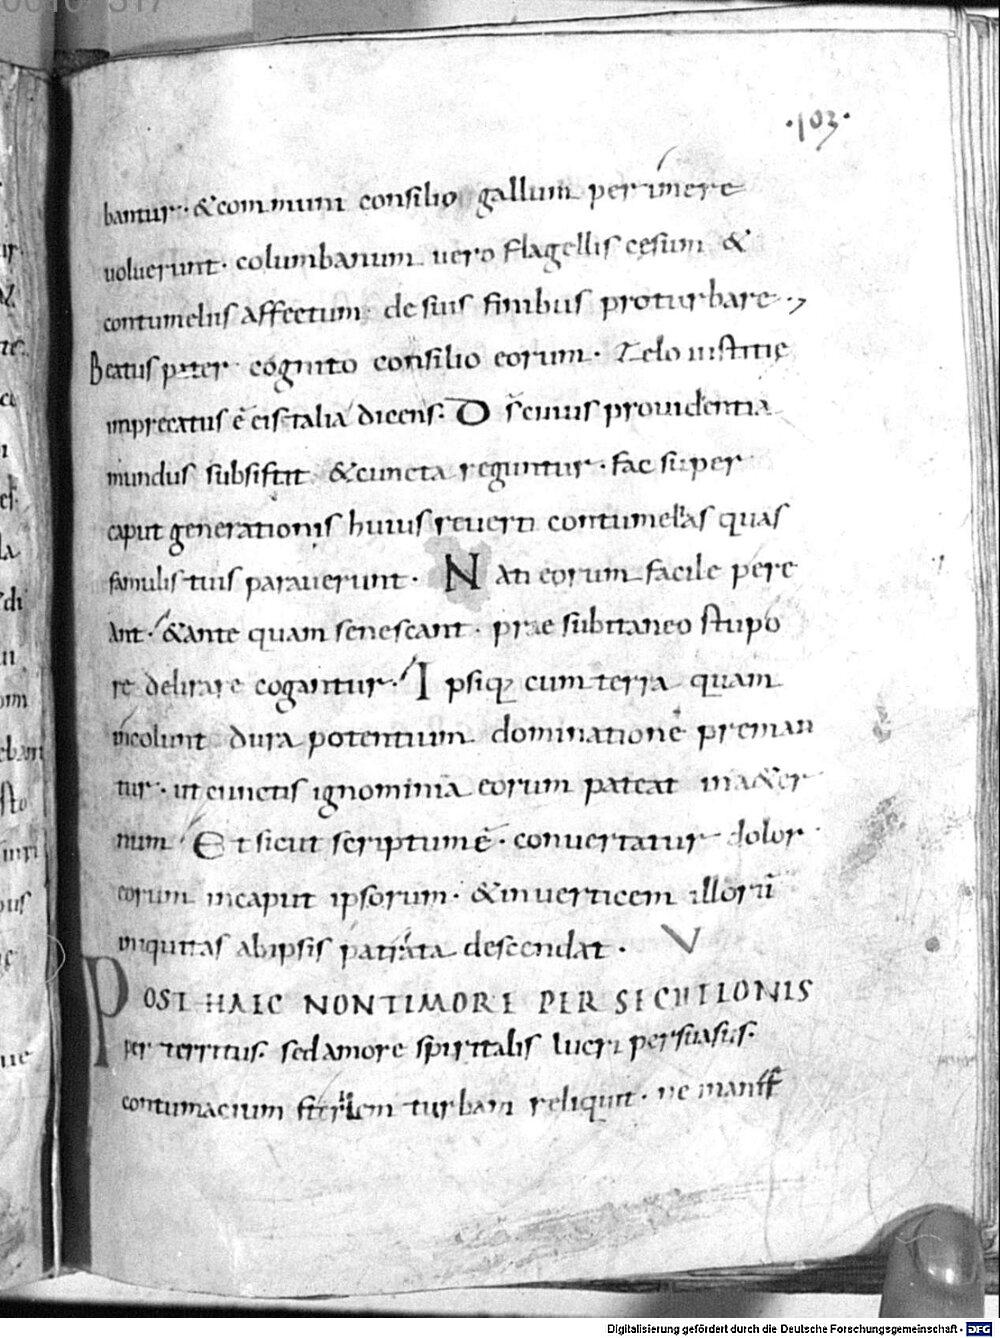 ·103·
bantur· & communi consilio gallum perimere
uoluerunt· columbanum uero flagellis cęsum &
contumeliis affectum· de suis finibus proturbare·,
Beatus pater cognito consilio eorum· zelo iustitię
imprecatus ẽ eis talia dicens· Ds̃ cuius prouidentia
mundus subsistit & cuncta reguntur· fac super
caput generationis huius reuerti contumelias quas
famulis tuis parauerunt· Nati eorum facile pere
ant· & ante quam senescant· prae subitaneo stupo
re delirare cogantur· Ipsiq; cum terra quam
incolunt dura potentium dominatione preman
tur· ut cunctis ignominia eorum pateat in aeter
num· Et sicut scriptum ẽ· conuertatur dolor
eorum in caput ipsorum· & in uerticem illorũ
iniquitas ab ipsis patrata descendat· V
POST HAEC NON TIMORE PERSECUTIONIS
perterritus· sed amore spiritalis lucri persuasus·
contumacium sterilem turbam reliquit· ne
Digitalisierung gefördert durch die Deutsche Forschungsgemeinschaft - DFG